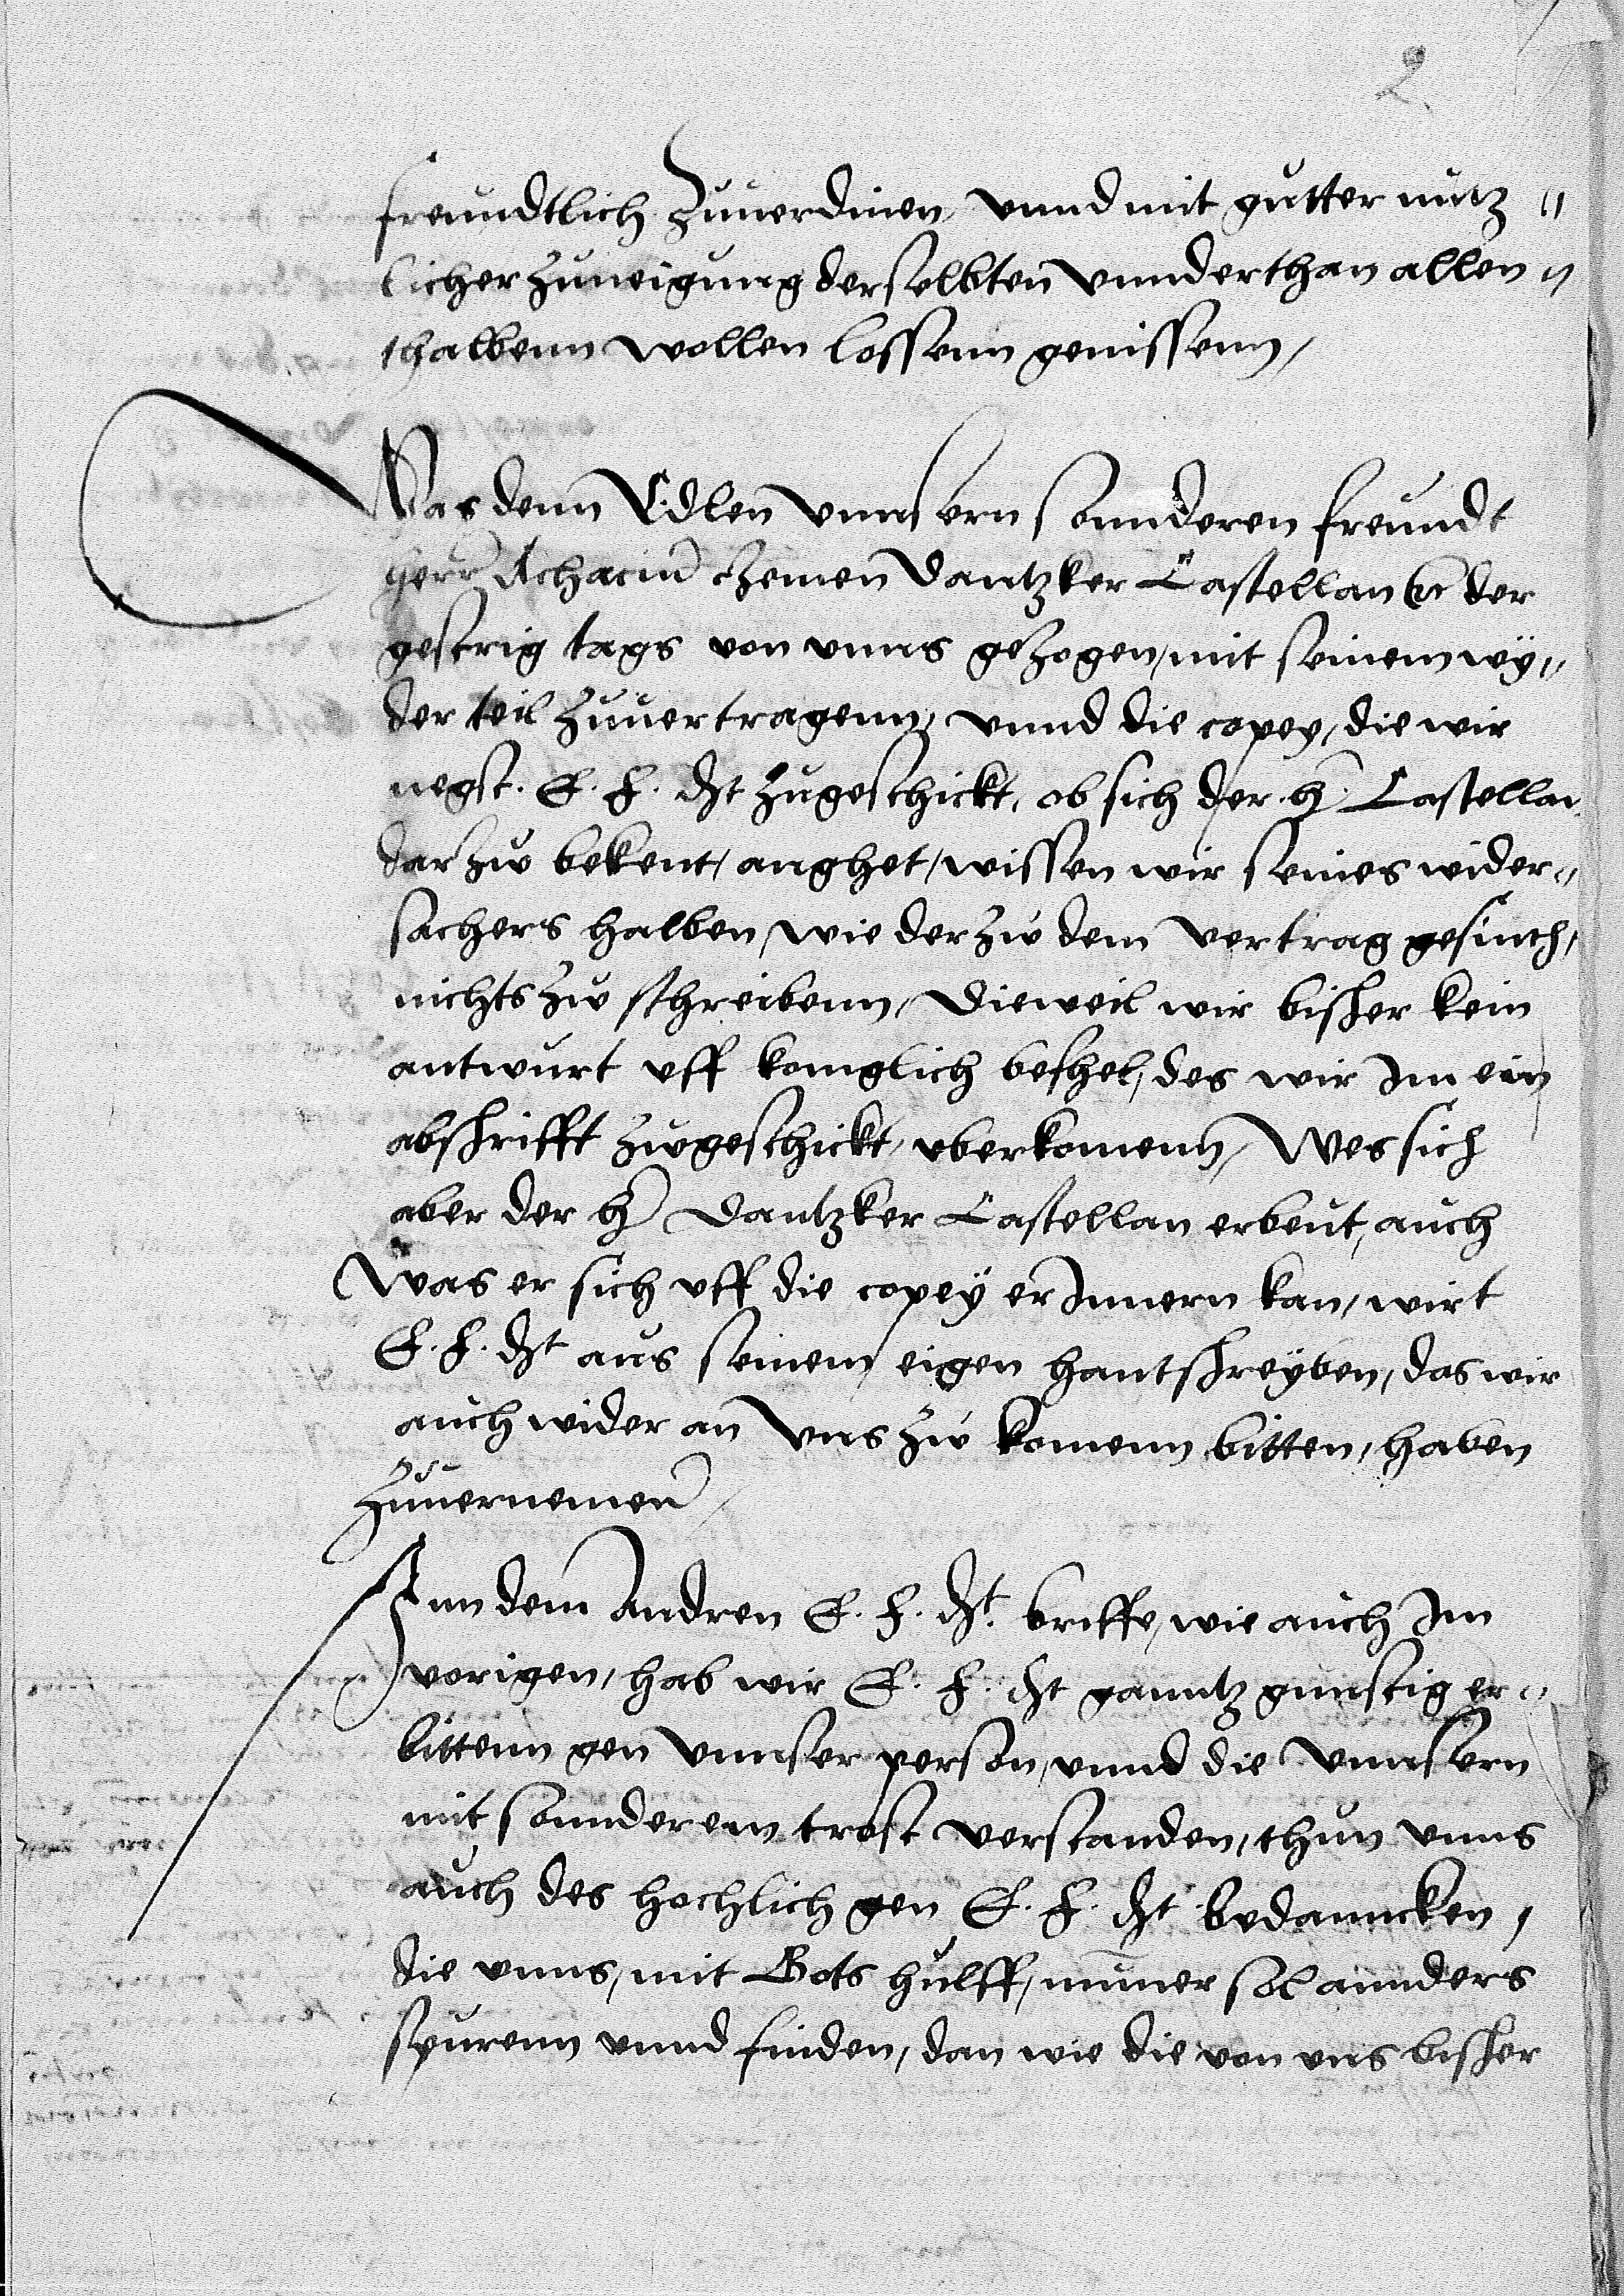 2
freundtlich zuuerdinen, vnnd mit gutter nutz„
licher zuneigung derselbten vnnderthan allen„
thalbenn wollen lossenn genissenn,
Was denn Edlen vnnsern sonnderen freundt
herr Achacium Czemen Dantzker Castellan der
gestrig tags von vnns gezogen, mit seinem wy„
der teil zuuertragenn, vnnd die copey, die wir
negst. E. F. Dt zugeschickt, ob sich der h. Castellan
darzw bekent, anghet, wissen wir seines wider„
sachers halben, wie der zw dem vertrag gesinth,
nichts zw schreibenn, Dieweil wir bisher kein
antwurt vff koniglich beshel, des wir Im ein
abschrifft zwgeschickt, vberkomenn, Wes sich
aber der h Dantzker Castellan erbeut, auch
Was er sich vff die copey er Innern kan, wirt
E. F. Dt aus seinem eigen hantschreyben, das wir
auch wider an Vns zw komenn bitten, haben
zuuernemen
Inn dem Andren E. F. Dt. briffe, wie auch Im
vorigen, hab wir E. F. Dt ganntz gunstig er„
bittenn gen Vnnser person, vnnd die Vnnsern
mit sonnderem trost verstanden, thun vnns
auch des hochlich gen E. F. Dt bedanncken,
die vnns, mit Gots hulff, nimer sol annders
spurenn vnnd finden, dan wie die von vns bisher